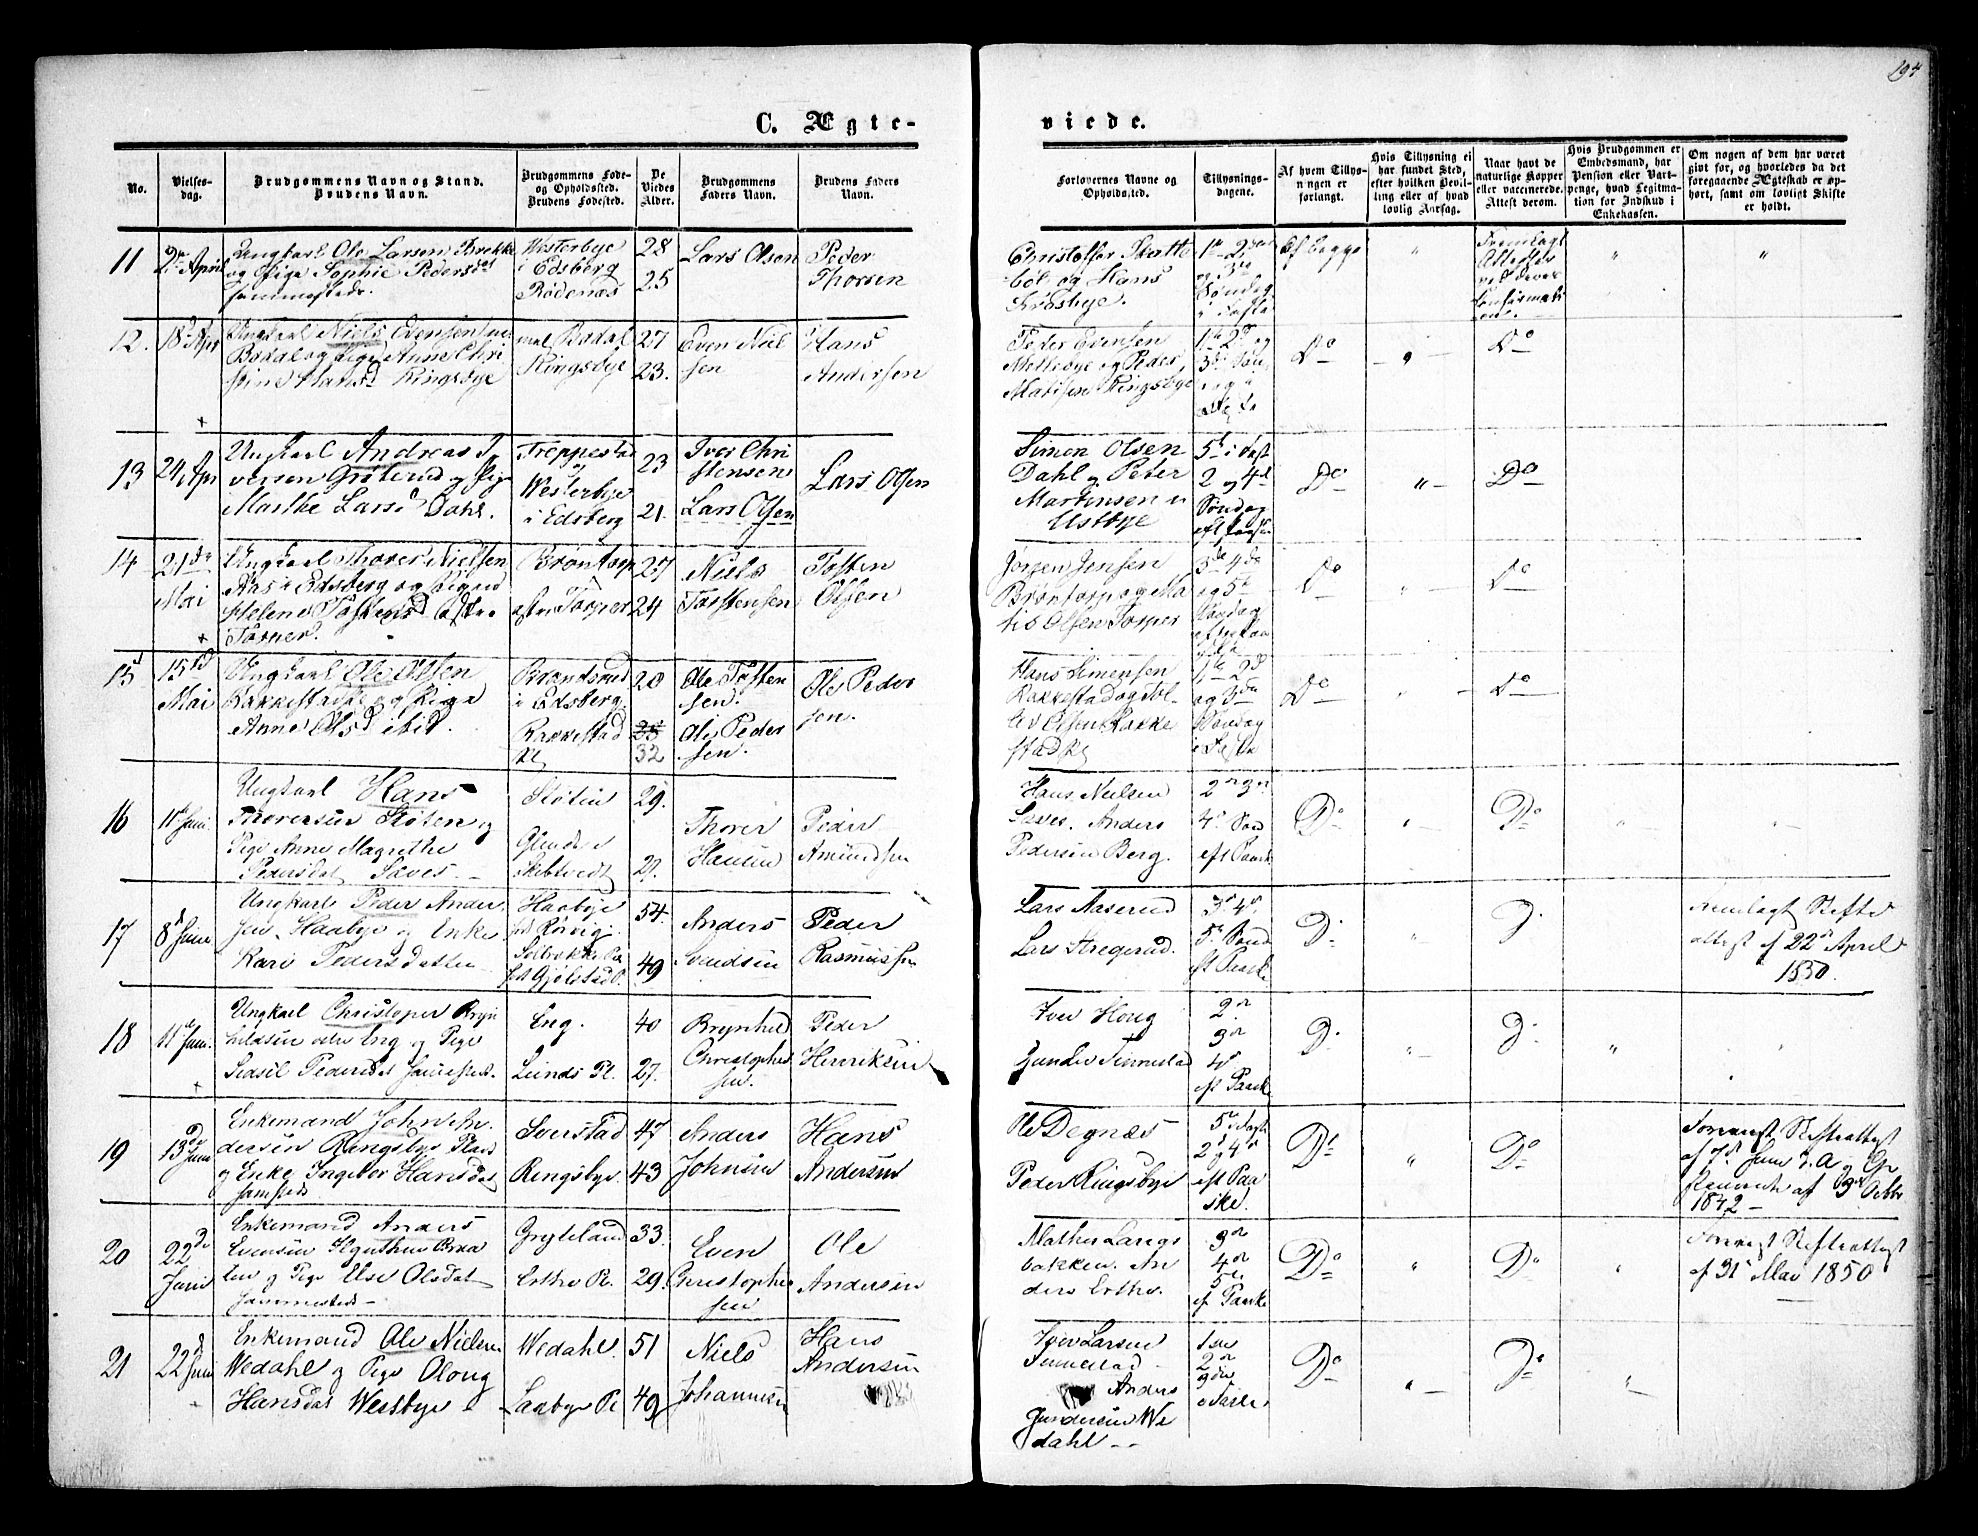 194
C. Ægte-
viede.
No.
Vielses-
dag.
Brudgommens Navn og Stand.
Brudens Navn.
Brudgommens Føde-
og Opholdssted.
Brudens Fødested.
De
Viedes
Alder.
Brudgommens
Faders Navn.
Brudens Faders
Navn.
Forlovernes Navne og
Opholdssted.
Tillysnings-
dagene.
Af hvem Tillys-
ningen er
forlangt.
Hvis Tillysning ei
har fundet Sted,
efter hvilken Bevil-
ling eller af hvad
lovlig Aarsag.
Naar havt de
naturlige Kopper
eller vaccinerede.
Attest derom.
Hvis Brudgommen er
Embedsmand, har
Pension eller Vart-
penge, hvad Legitima-
tion for Indskud i
Enkekassen.
Om nogen af dem har været
gift før, og hvorledes da det
foregaaende Ægteskab er op-
hørt, samt om lovligt Skifte
er holdt.
11
2de April
Ungkarl Ole Larsen Brekke
og Pige Sophie Pedersdat
sammesteds.
Westerbye
i Edsberg
Rødenæs
28
25
Lars Olsen
Peder
Thorsen
og Hans
Krosbye.
1ste 2den
og 3die
Søndag
i Faste
Af begge
Fremlagt
Attester
12.
18d Apr
Ungkarl Niels Evensen
Bødal og Pige Anne Chri
stine Hansd Ringsbye
Bødal
Ringsbye
27
23.
Even Niel
sen
Hans
Andersen
Peder Evensen
Melleby og Peder
Matisen Ringsbye
Do
Do
13
24 Apr
Ungkarl Andreas I
versen Grøterud og Pige
Marthe Larsd Dahl.
Treppestad
Westerbye
i Edsberg
23
21.
Iver Chri
stensen
Lars Olsen
Lars Olsen
Simon Olsen
Dahl og Peter
Martinsen
Ustbye
5te i Fast
2 og 4de
Søndag
Do
Do
14
21de
Mai
Ungkarl Thorer Nielsen
Aas i Edsberg og Pigen
Helene Tostensd østre
Tosper.
Brøntorp
østre Tosper
27
24
Niels
Torstensen
Tosten
Olsen
Jørgen Jensen
Brøntorp og Ma
tis Olsen Tosper
3de 4de
og 5te
Søndag
Do
Do
15
15d
Mai
Ungkarl Ole Olsen
Rakkestad og Pige
Anne Olsd ibid.
Brandsrud
i Edsberg
Rakkestad
20
25
32
Ole Tosten
sen.
Ole Peder
sen.
Ole Peder
sen.
Hans Simensen
Rakkestad og Tol-
lev Olsen Rakke
stad
1ste 2d
og 3de
Søndag
Do
Do
16
11te Juni.
Ungkarl Hans
Thorersen Støten og
Pige Anne Magrethe
Pedersdat Saves.
Støten
Skebtvedt
29.
29.
Thorer
Hansen
Peder
Amundsen
Hans Nielsen
Saves. Anders
Pedersen Berg.
4de Sønd
eft Paaske
Do
Do
17
8d Juni
Ungkarl Peder Ander
sen Haabye og Enke
Kari Pedersdatter
Haabye
54.
49
Anders
Svendsen
Peder
Rasmussen
Lars Aaserud
Lars Stregerud.
3. 4.
5te Sønd
eft Paaske
D.
D.
Fremlagt Skifte
attest af 22de April
1850.
18
11te Juni.
Ungkarl Christopher Bryn
hildsen Eng og Pige
Sidsel Pedersdat
Eng.
Lunds Pl.
40
27.
Brynhild
Christopher
sen.
Peder
Henriksen
Iver Houg
Gunder Timestad
2.
3.
4.
eft Paaske
D.
D.
19
13de
Juni
Enkemand John An
dersen Ringsbye Plads
og Enke Ingebor Hansdat
samsteds
Sverstad
Ringsbye
47
43
Anders
Johnsen
Hans
Andersen
Ole Degnæs
Peder Ringsbye
5te i Faste
2 og 4de
eft Paa
ske.
Do
Do
Foreviist Skifteattest
af 7de Juni d.A og
af 3 Octbr
1842
20
22de
Juni
Enkemand Anders
Evensen Braa
ten og Pige Else Olsdat
sammesteds
Gryteland
Erthe Pl.
33.
29.
Even
Christopher
sen
Ole
Andersen
Mathis Langs
bakken. An
ders Erthe.
3de
4de
5te
ef Paaske
Do
Do
Foreviist Skifteattest
af 31 Mai 1850
21
22d Juni
Enkemand Ole Nielsen
Wedahl og Pige Oloug
Hansdat Westbye
Wedahl.
Laabye Pl
51
49
Niels
Johannesen
Hans
Andersen
Iver Larsen
Timestad
Anders
Gundersen We
dahl
1ste
2de
3die
i Faste
Do
Do